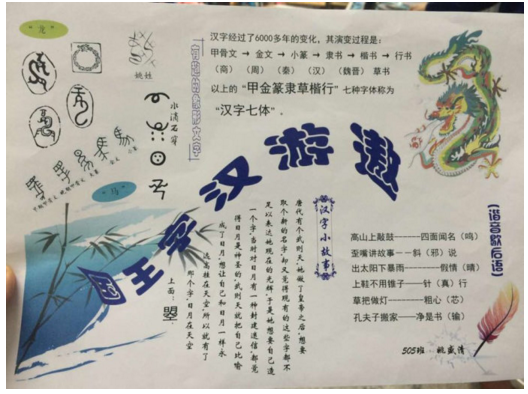 龙
姚姓
水滴石穿
马
汉字经过了6000多年的变化，其演变过程是：
甲骨文 → 金文 → 小篆 → 隶书 → 楷书 → 行书
（商） （周） （秦） （汉） （魏晋） 草书
以上的“甲金篆隶草楷行”七种字体称为
“汉字七体”．
遨游汉字王国
汉字小故事
唐代有个武则天，她做了皇帝之后，想要
取个新的名字，却又觉得现有的这些字都不
足以表达她现在的光辉，于是她想要自己造
一个字。当时对日月有一种封建迷信，都觉
得日月是神圣的，武则天就把自己比喻
成了日月，想让自己和日月一样永
远高挂在天空，所以就有了
那个字：日月在天空
上面：曌
【谐音歇后语】
高山上敲鼓------四面闻名（鸣）
歪嘴讲故事--斜（邪）说
出太阳下暴雨-------假情（晴）
上鞋不用锥子——针（真）行
草把做灯------粗心（芯）
孔夫子搬家----净是书（输）
505班 姚盛清